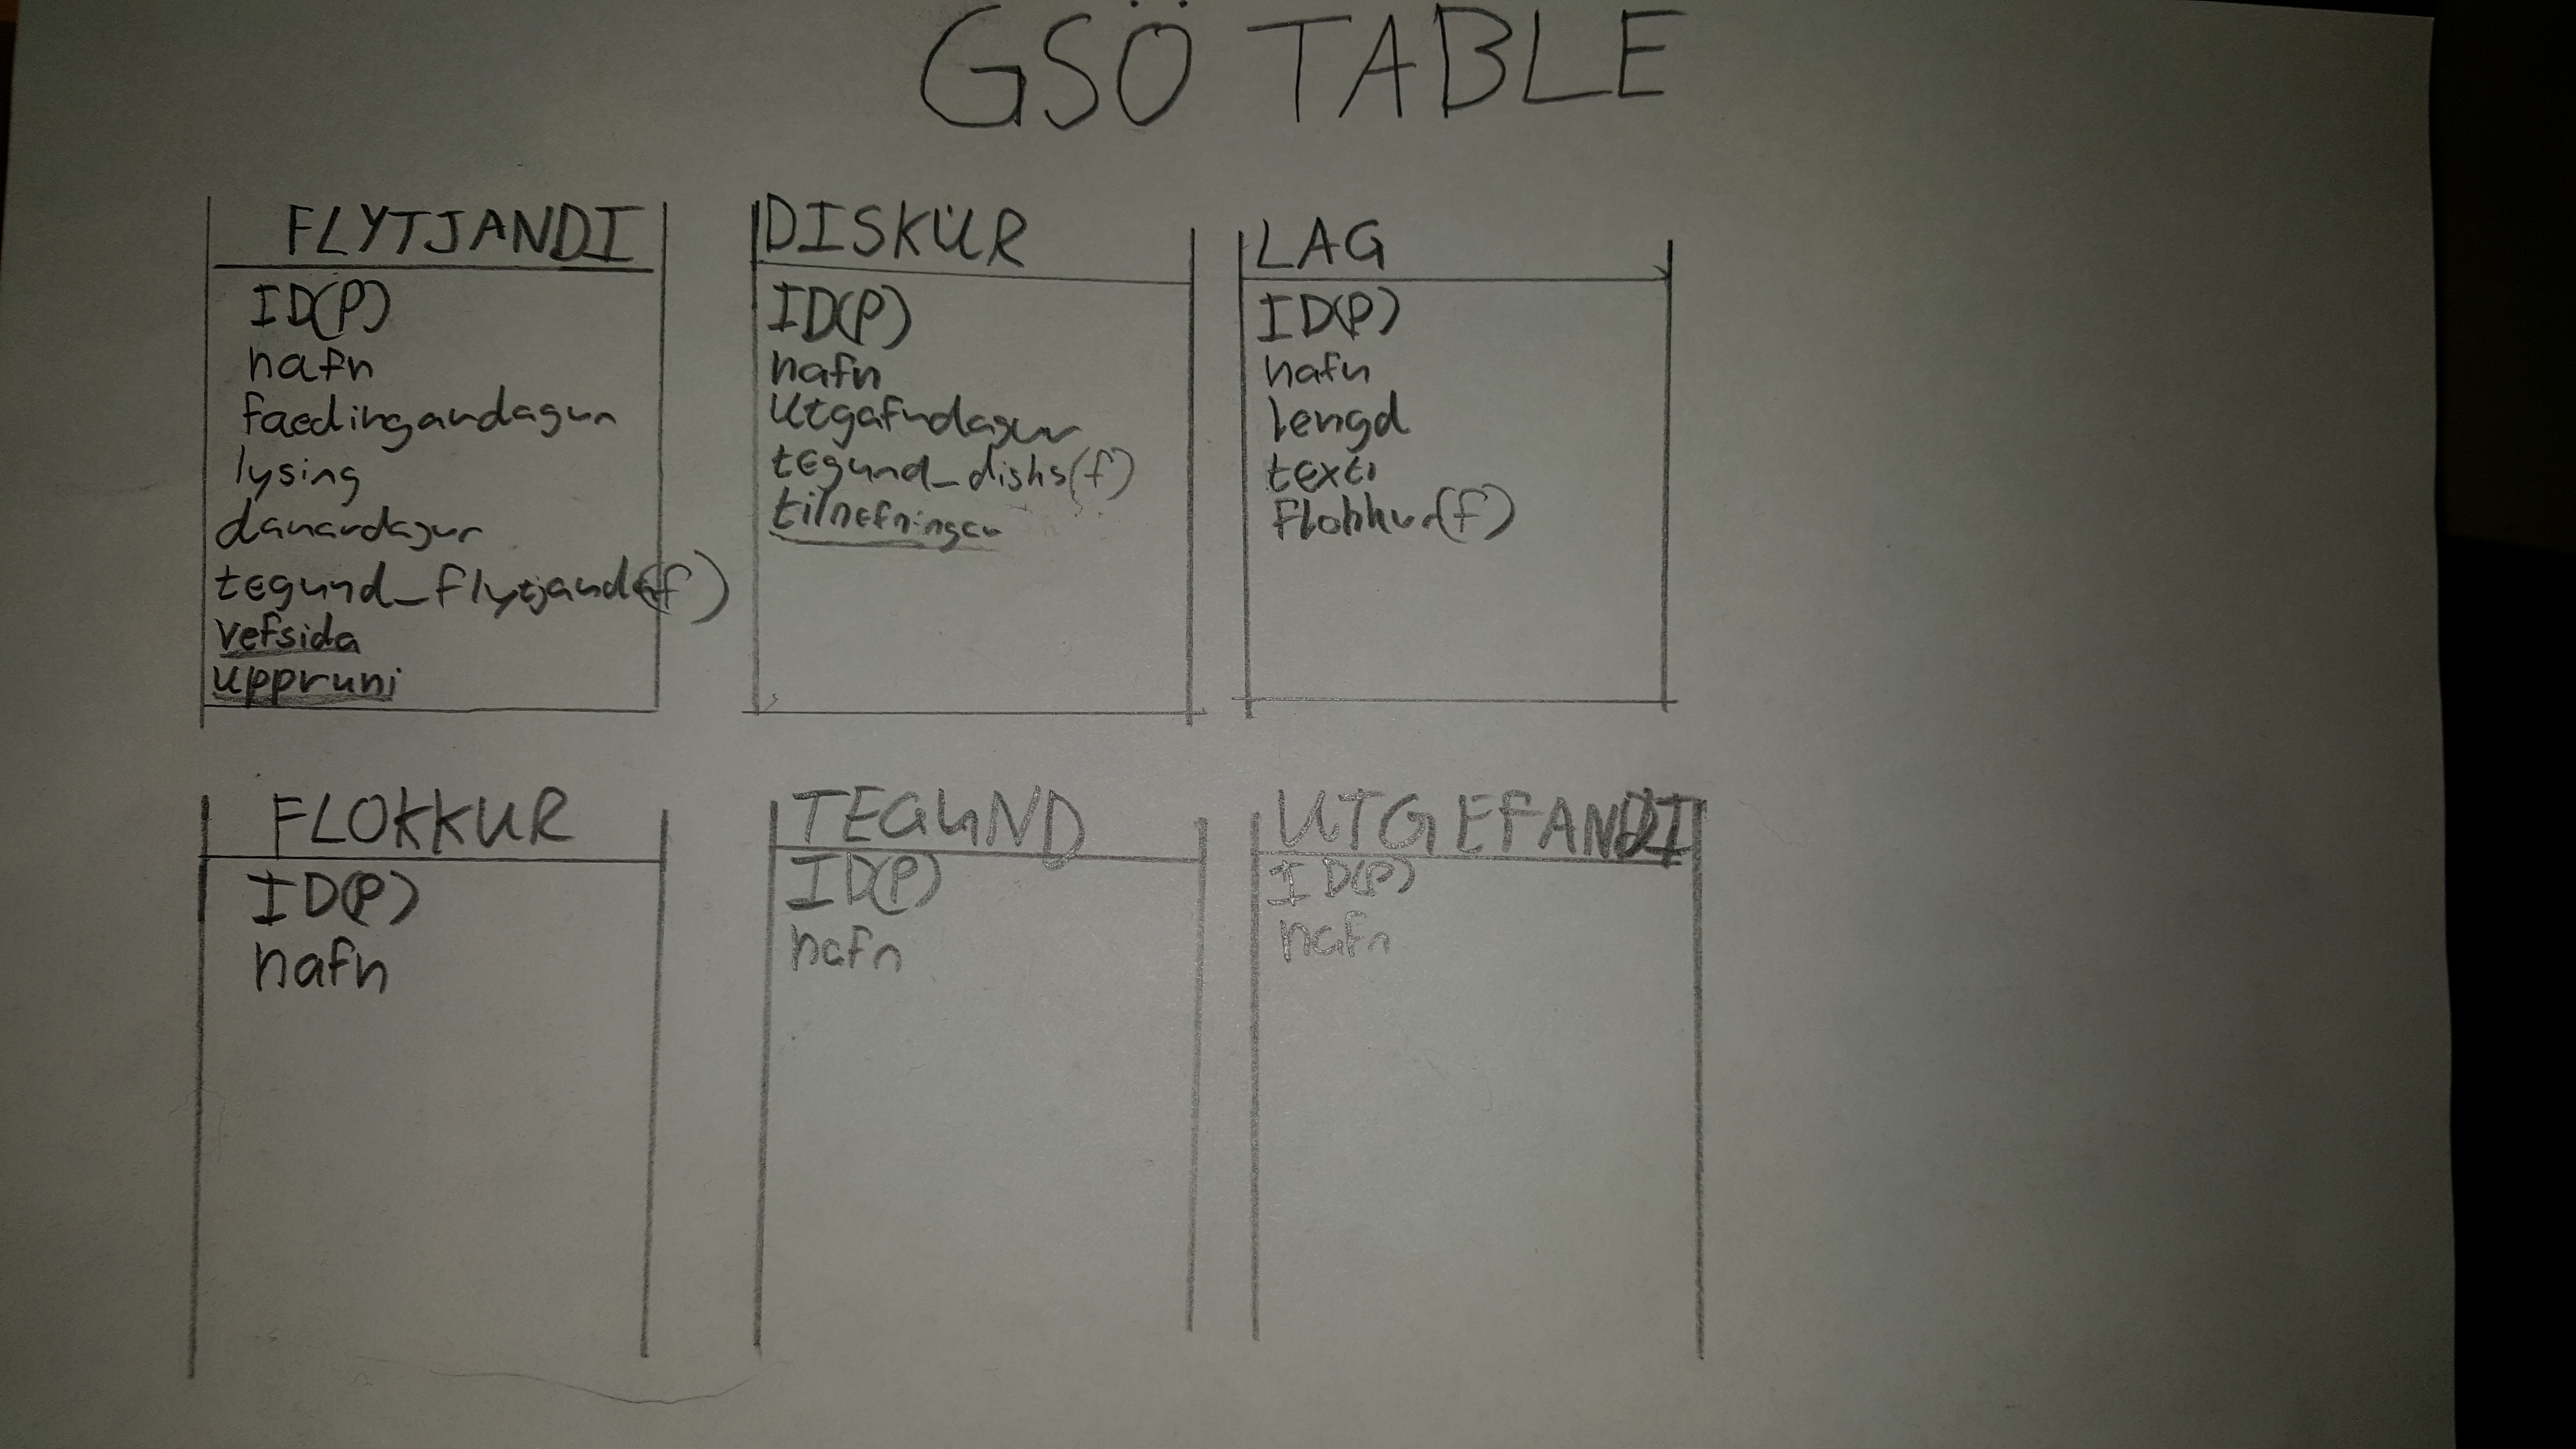 GSÖ TABLE
FLYTJANDI
ID(P)
nafn
faedingardagur
lysing
danardagur
tegund_flytjandi(f)
vefsida
uppruni
DISKUR
ID(P)
nafn
utgafudagur
tegund_disks(f)
tilnefningar
LAG
ID(P)
nafn
lengd
texti
flokkur(f)
FLOKKUR
ID(P)
nafn
TEGUND
ID(P)
nafn
UTGEFANDI
ID(P)
nafn